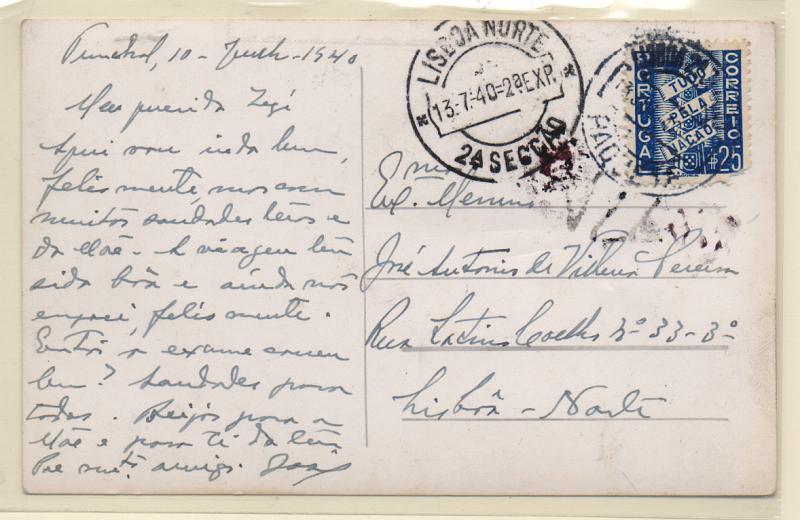 Funchal, 10 - Julho - 1940
Meu querido Zezé
Aqui vou indo bem,
felismente, mas com
muitas saudades tuas e
da Mãe. A viagem tem
sido bôa e ainda não
enjoei, felismente.
Então o exame correu
bem? Saudades para
todos. Beijos para a
Mãe e para ti do teu
Pae mto. amigo.
LISBOA NORTE
13-7-40-2ªEXP.
2A SECÇÃO
PORTUGAL
CORREIO
TUDO
PELA
NAÇÃO
1$25
PAQUETE
Exmo
Menino
José Antonio de Vilhena Pereira
Rua Latino Coelho Nº 33-3º
Lisbôa - Norte